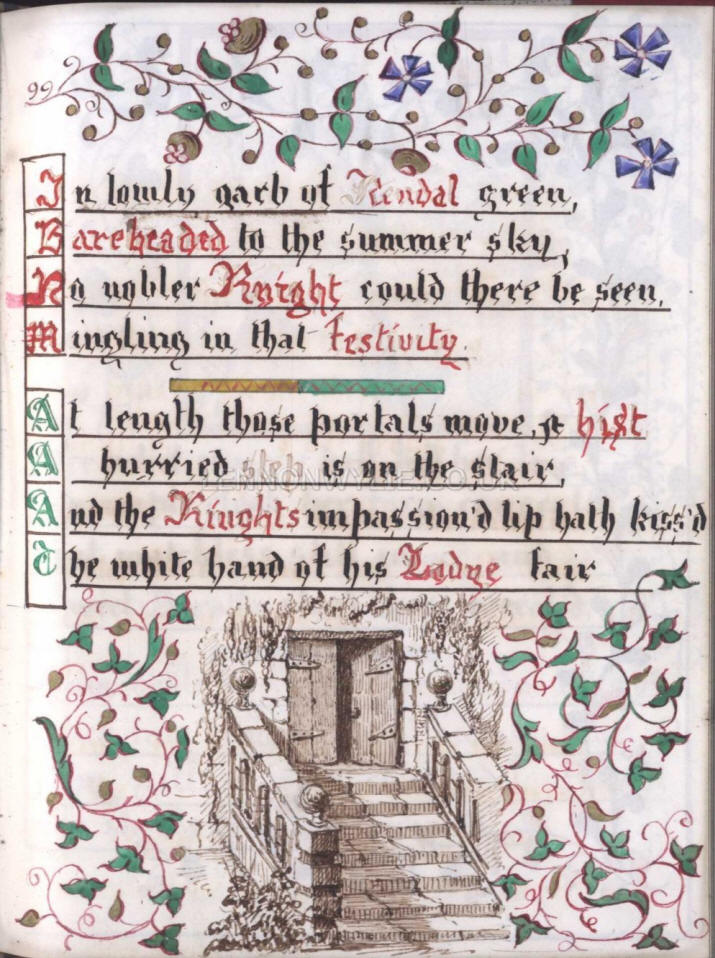 99
In lowly garb of Kendal green,
Bareheaded to the summer sky,
No nobler Knight could there be seen,
Mingling in that festivity.
At length those portals move, & hist
A hurried step is on the stair,
And the Knights impassion'd lip hath kiss'd
The white hand of his Ladye fair
LENNONWYLIE.CO.UK